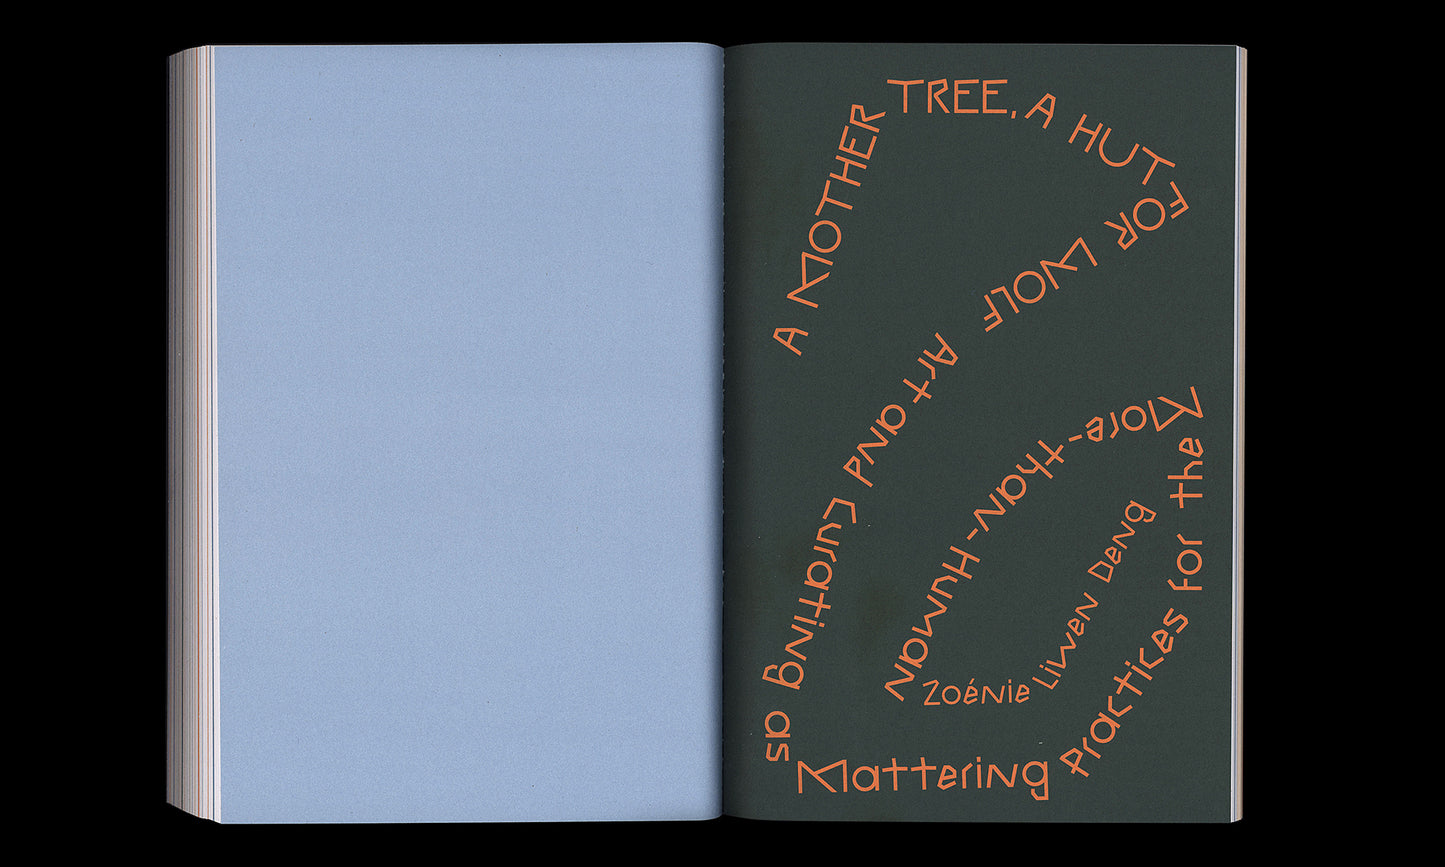 A MOTHER TREE, A HUT FOR WOLF
Art and Curating as Mattering Practices for the More-than-Human
Zoénie Liwen Deng